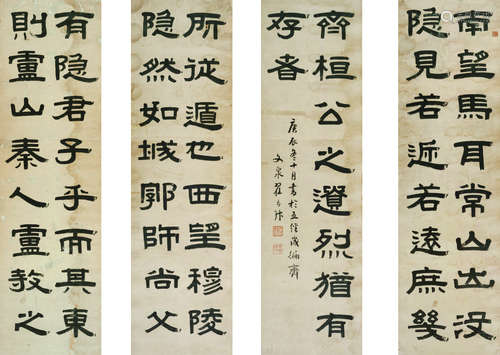 南望馬耳常山出没
隐見若近若遠庶幾
有隐君子乎而其東
則盧山秦人盧敖之
所從遁也西望穆陵
隐然如城郭師尚父
齊桓公之遺烈猶有
存者
庚辰冬十月書於五經歲徧齋
文泉翟云升